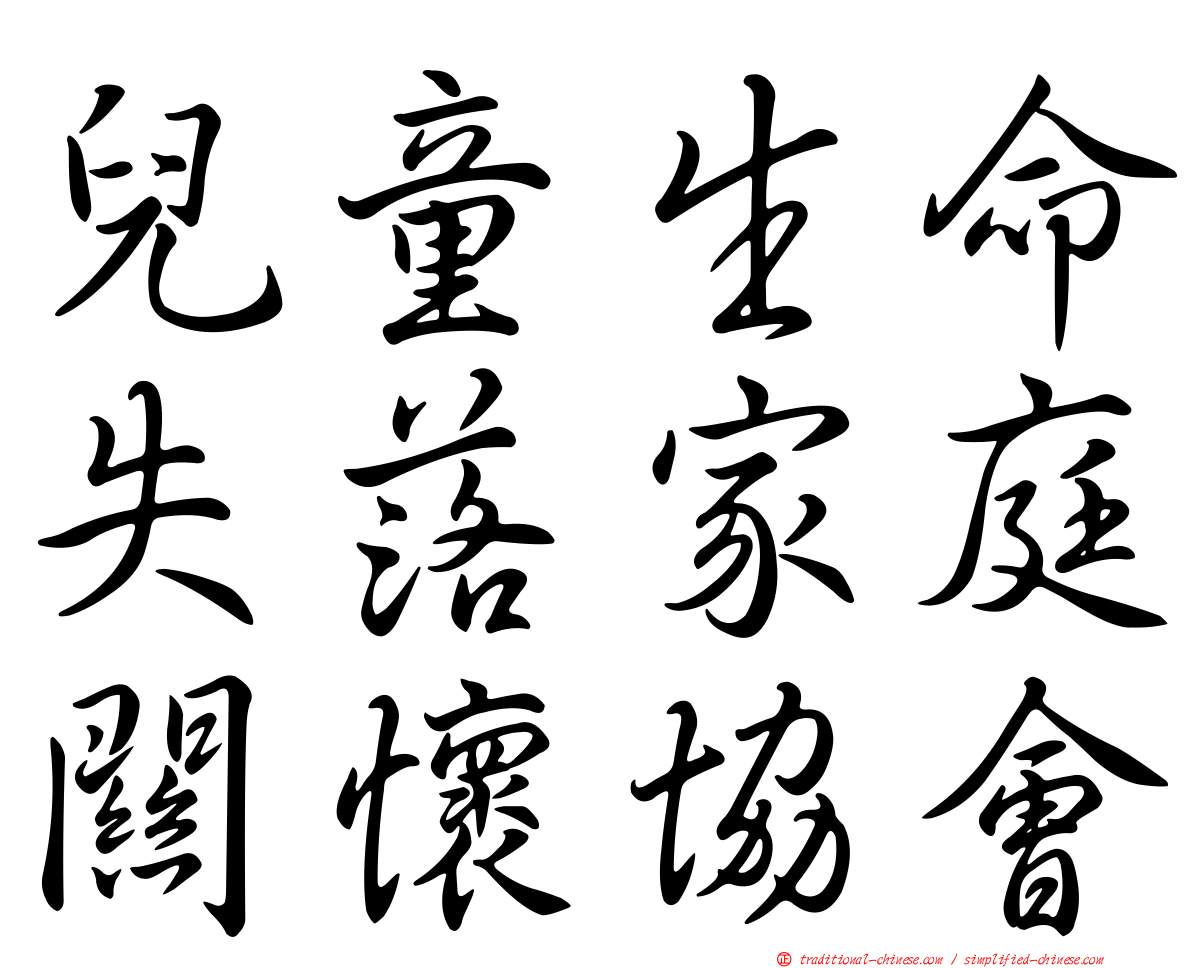 兒童生命
失落家庭
關懷協會
正 traditional-chinese.com / simplified-chinese.com